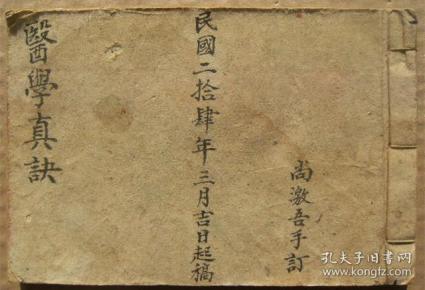 醫學真訣
民國二拾肆年三月吉日起稿
尚激吾手訂
孔夫子旧书网
www.kongfz.com